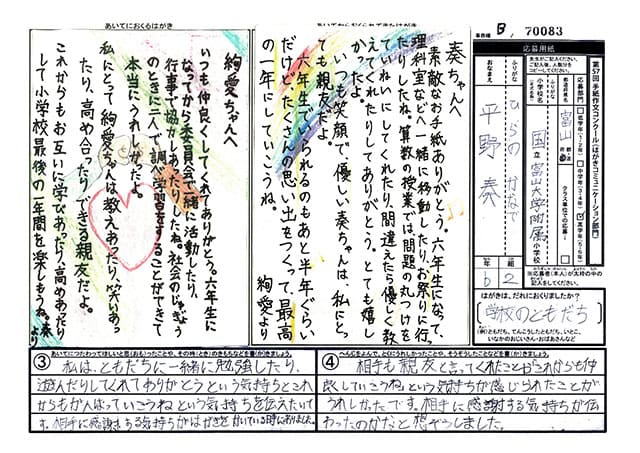 あいてにおくるはがき
絢愛ちゃんへ
いつも仲良くしてくれてありがとう。六年生に
なってから委員会で一緒に活動したり、
行事で協力しあったりしたね。社会のじゅぎょう
のときに二人で調べ学習をすることができて
本当にうれしかったよ。
私にとって絢愛ちゃんは教えあったり、笑いあっ
たり、高め合ったりできる親友だよ。
これからもお互いに学びあったり、高めあったり
して小学校最後の一年間を楽しもうね。
奏より
奏ちゃんへ
素敵なお手紙ありがとう。六年生になって、
理科室などへ一緒に移動したり、お祭りに行っ
たりしたね。算数の授業では問題の丸つけを
ていねいにしてくれたり、間違えたら優しく教
えてくれたりしてありがとう。とても嬉し
いつも笑顔で優しい奏ちゃんは、私にとっ
ても親友だよ。
六年生でいられるのもあと半年ぐらい
だけど、たくさんの思い出をつくって、最高
の一年にしていこうね。
絢愛より
B
70083
応募用紙
第57回 手紙作文コンクール(はがきコミュニケーション部門)
ふりがな
ひらの かなで
おなまえ
平野 奏
富山
国立 富山大学附属 小学校
年
6
組
2
はがきは、だれにおくりましたか?
学校のともだち
③ あいてにつたわってほしいと思(おも)ったことや、その時(とき)のきもちなどを書(か)きましょう。
私は、ともだちに一緒に勉強したり、
遊んだりしてくれてありがとうという気持ちとこれ
からもがんばっていこうねという気持ちを伝えたいで
す。相手に感謝する気持ちがはがきをかいている時にありました。
④ へんじをよんで、とくにうれしかったことや、そうぞうしたことなどを書(か)きましょう。
相手も親友と言ってくれたことやこれからも仲
良くしていこうねという気持ちが感じられたことが
うれしかったです。相手に感謝する気持ちが伝
わったのかなと想ぞうしました。